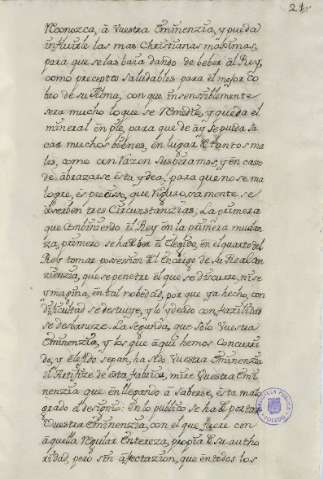 21
Reconozca, â Vuestra Eminenzia, y pueda
influirle las mas Christianas maximas,
para que se las baia dando de beber al Rey,
como preceptos saludables para el mejor co
bro de su Alma, con que insensiblemente
sera mucho lo que se remedie, y queda el
mineral en pie, para que de ay se pueda sa
car muchos bienes, en lugar de tantos ma
les, como con razon suspiramos, y en caso
de abrazarse esta ydea, para que no se ma
logre, es preciso, que vigurosamente se
observen tres Circunstanzias, La primera
que combiniendo el Rey en la primera mudan
za, primero se ha de ber el Elegido, en el quarto del
Rey tomar posession del Encargo de su Real con
zienzia, que se penetre el que se discurre, ni se
ymagina, en tal nobedad, por que ya hecho, con
dificultad se destruye, y lo ydeado con fazilidad
se desbaneze. La segunda, que solo Vuestra
Eminenzia, y los que â que hemos concurri
do, y el sepan, ha sido Vuestra Eminenzia
el Artifize de esta fabrica, mire Vuestra Emi
nenzia que en llegando â saberse, esta malo
grado el designio: en lo publico se ha de portar
Vuestra Eminenzia, con el que fuere con
aquella regular Entereza, propria de su autho
ridad, pero sin afectazion, que en todos los